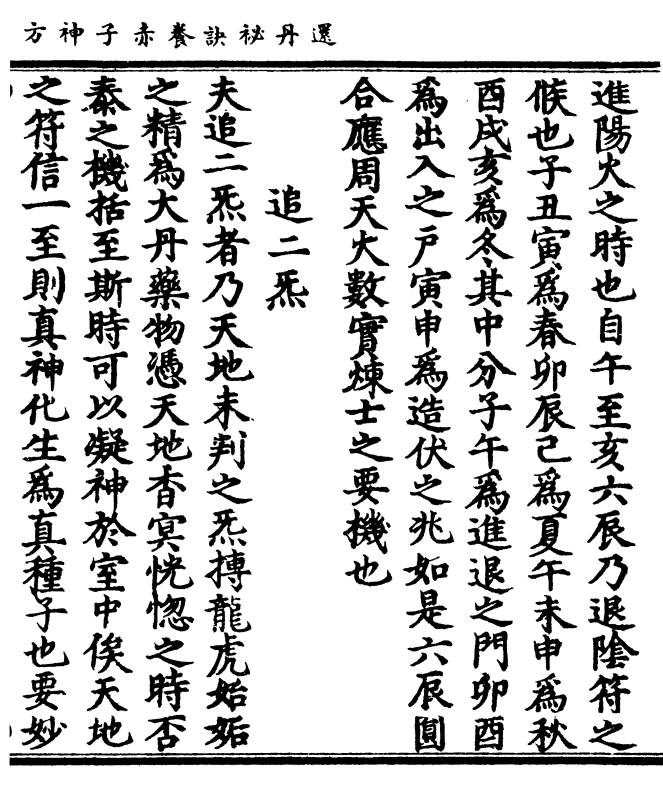 還丹祕訣養赤子神方
進陽火之時也自午至亥六辰乃退陰符之
候也子丑寅爲春卯辰巳爲夏午未申爲秋
酉戌亥爲冬其中分子午爲進退之門卯酉
爲出入之戸寅申爲造伏之兆如是六辰圓
合應周天火數實煉士之要機也
追二炁
夫追二炁者乃天地未判之炁摶龍虎始姤
之精爲大丹藥物憑天地杳冥恍惚之時否
泰之機括至斯時可以凝神於室中俟天地
之符信一至則真神化生爲真種子也要妙